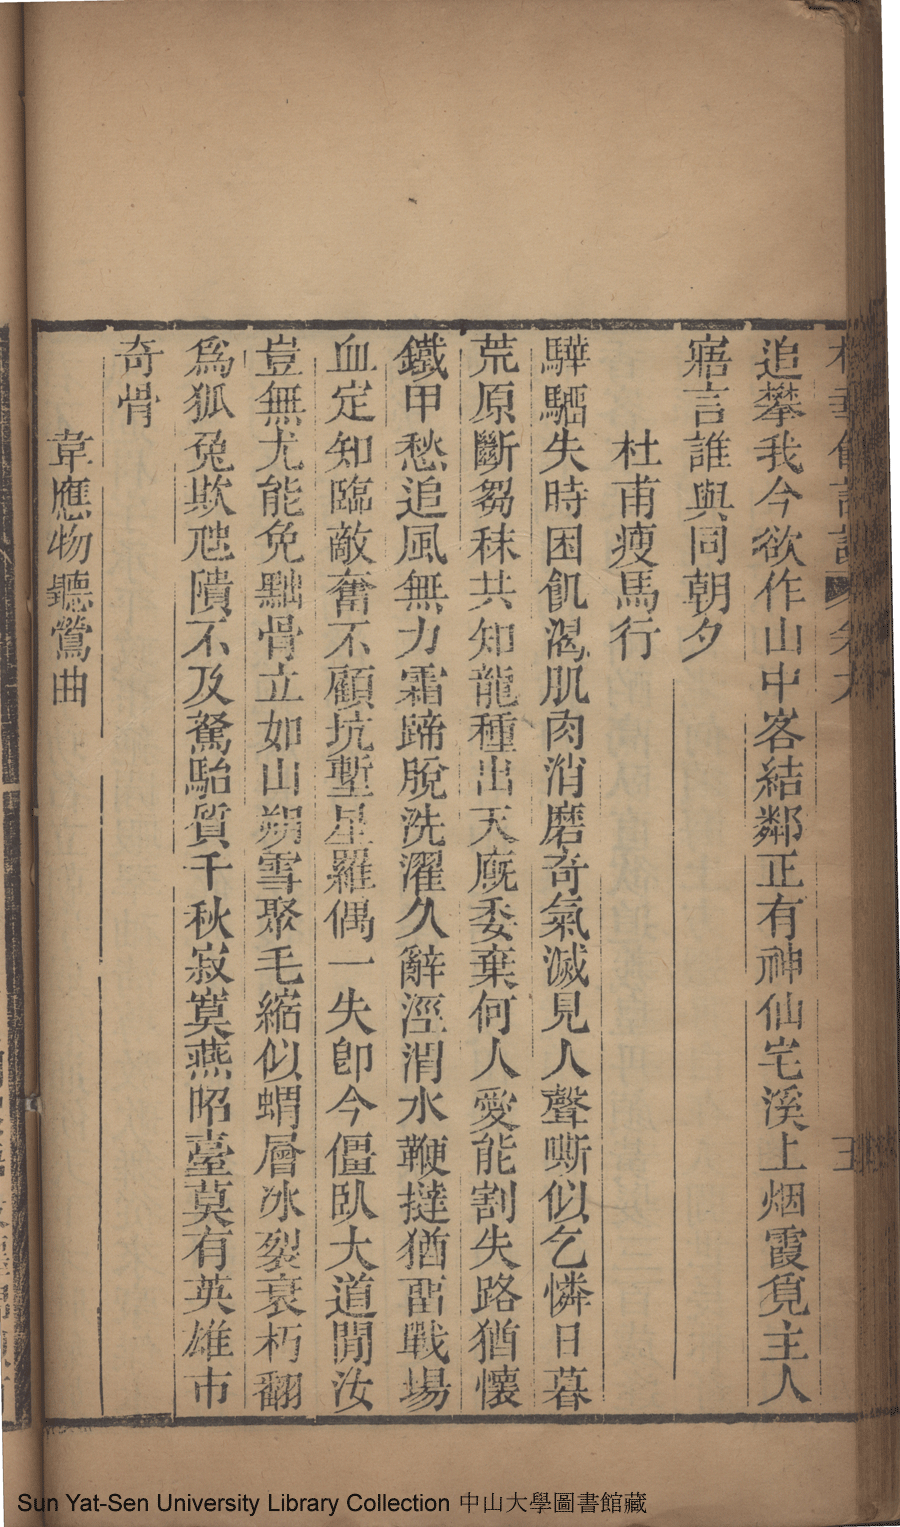 追攀我今欲作山中客結鄰正有神仙宅溪上烟霞覓主人
寤言誰與同朝夕
杜甫瘦馬行
驊騮失時困飢渴肌肉消磨奇氣滅見人聲嘶似乞憐日暮
荒原斷芻秣共知龍種出天廐委棄何人愛能割失路猶懷
鐵甲愁追風無力霜蹄脫洗濯久辭涇渭水鞭撻猶畱戰場
血定知臨敵奮不顧坑塹星羅偶一失卽今僵臥大道閒汝
豈無尤能免黜骨立如山朔雪聚毛縮似蝟層冰裂衰朽翻
爲狐兔欺虺隤不及駑駘質千秋寂寞燕昭臺莫有英雄市
奇骨
韋應物聽鶯曲
Sun Yat-Sen University Library Collection 中山大學圖書館藏